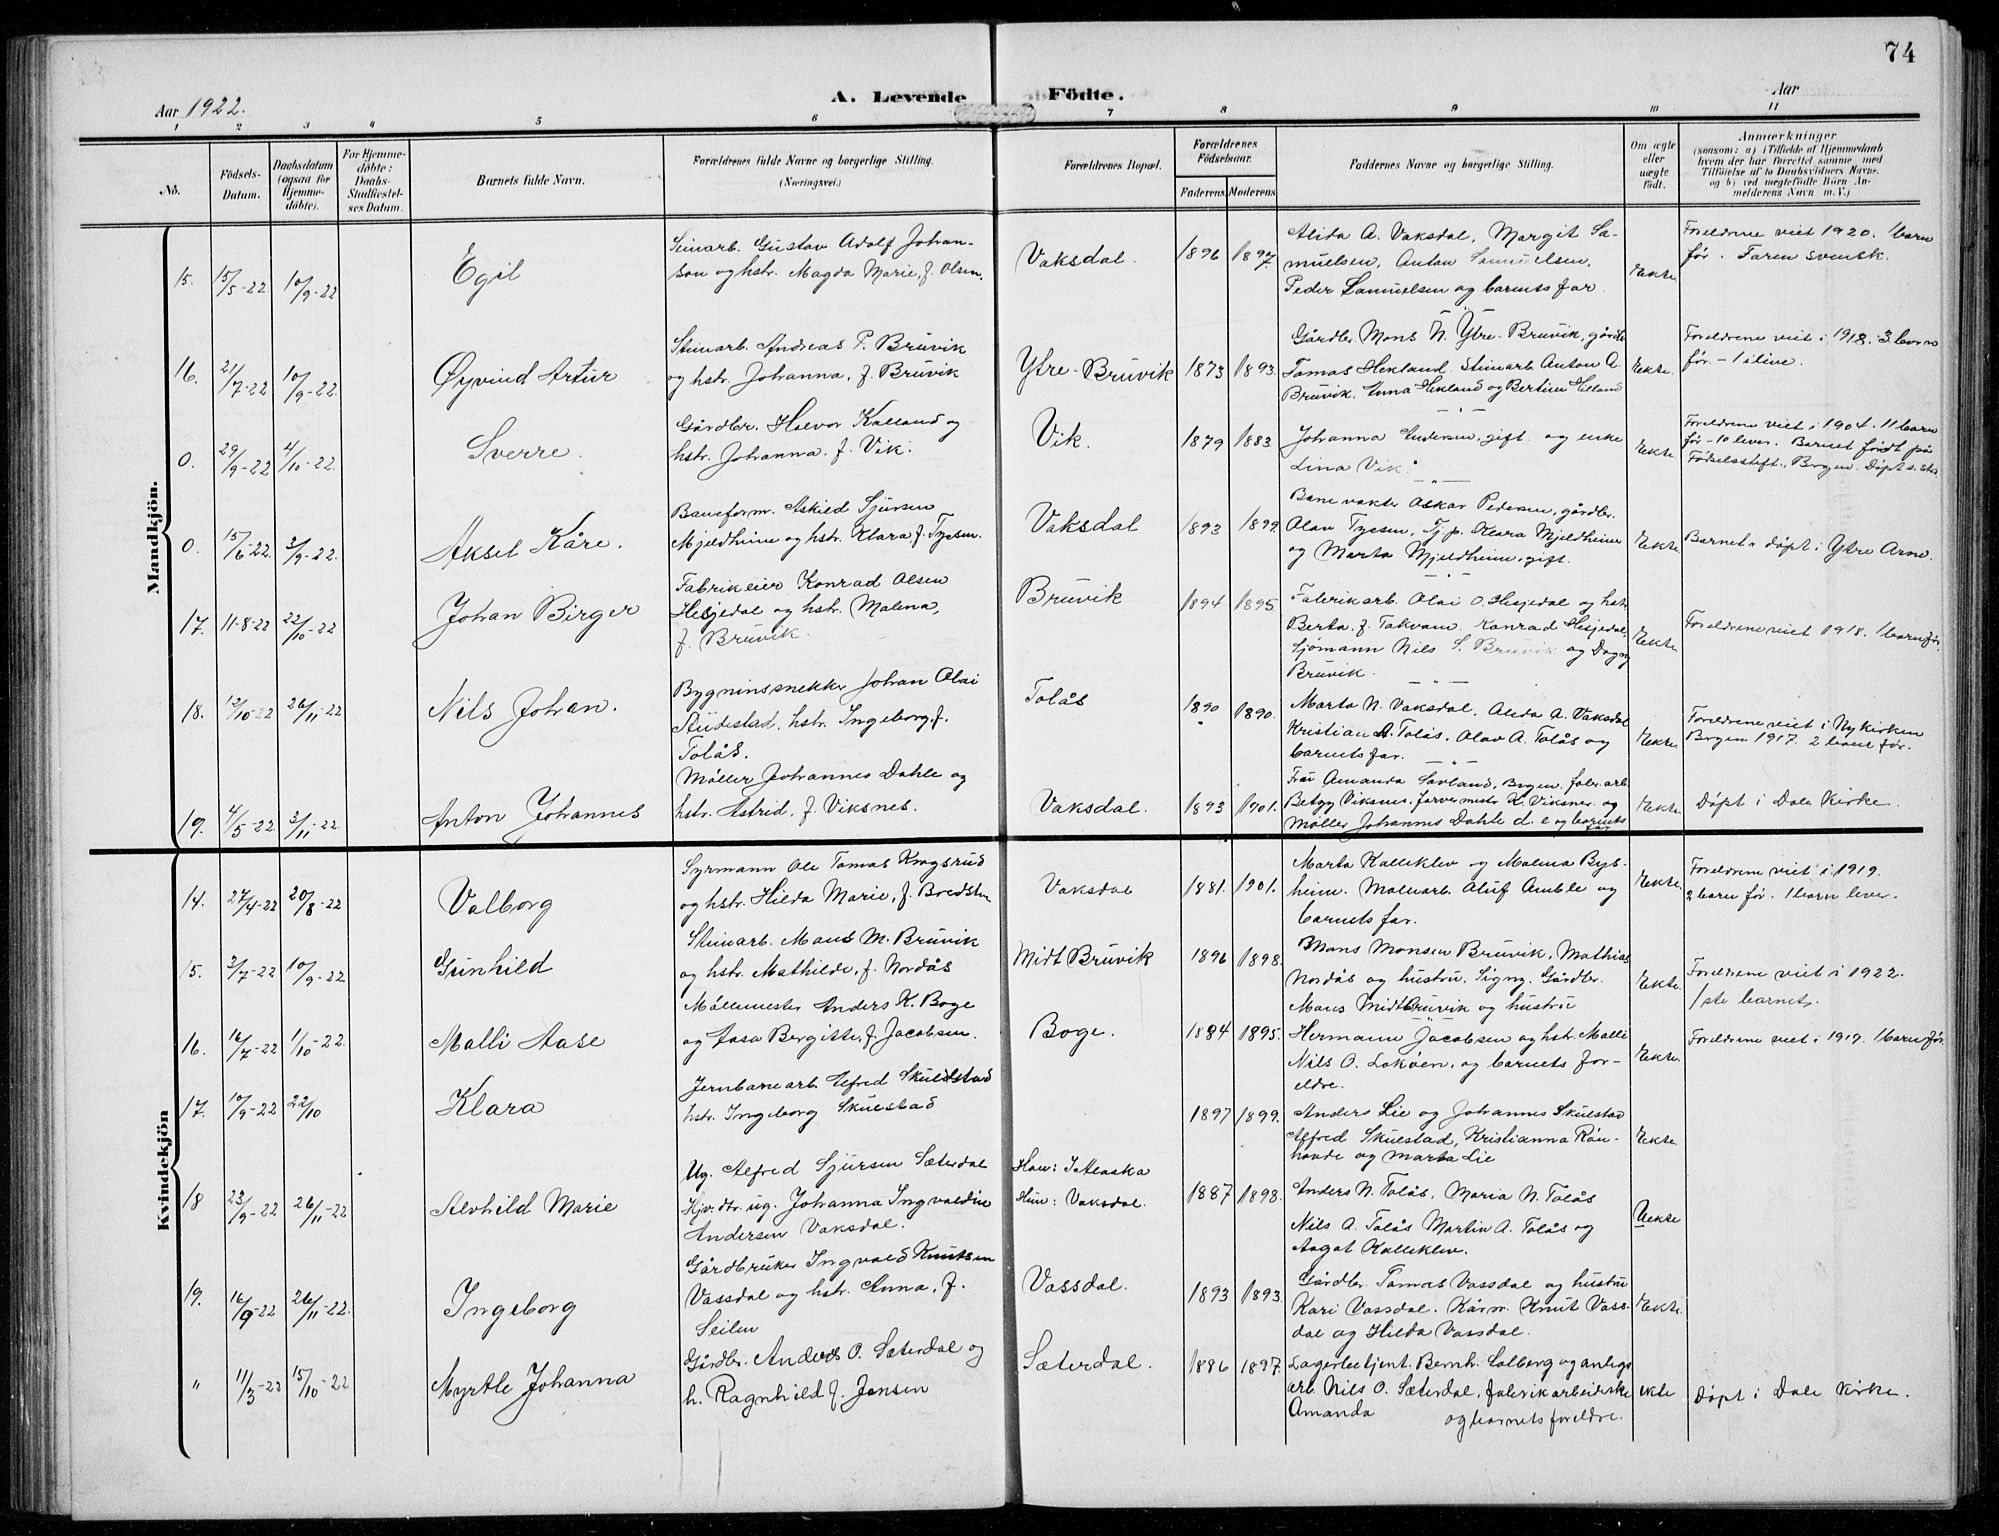 74
A. Levende Födte.
Aar 1922.
Aar
1 2 3 4 5 6 7 8 9 10 11
No.
Födsels-Datum.
Daabsdatum (ogsaa for Hjemmedöbte).
For Hjemmedöbte: Daabs-Stadfæstelses Datum.
Barnets fulde Navn.
Forældrenes fulde Navne og borgerlige Stilling. (Næringsvei.)
Forældrenes Bopæl.
Forældrenes Födselsaar.
Faderens. Moderens.
Faddernes Navne og borgerlige Stilling.
Om ægte eller uægte födt.
Anmærkninger (saasom: a) i Tilfælde af Hjemmedaab hvem der har forrettet samme, med Tilföielse af to Daabsvidners Navne, og b) ved uægtefödte Börn Anmelderens Navn m. V.)
Mandkjön.
15. 15/5-22 10/9-22 Egil
Steinarb. Gustav Adolf Johan-
son og hstr. Magda Marie, f. Olsen.
Vaksdal. 1896 1897.
Alida A. Vaksdal, Margit Sa-
muelsen, Anton Samuelsen,
Peder Samuelsen og barnets far.
Ekte.
Foreldrene viet 1920. 1 barn
før. Faren svensk.
16. 21/7-22 10/9-22. Øyvind Artur
Steinarb. Andreas P. Bruvik
og hstr. Johanna, f. Bruvik
Ytre-Bruvik 1873 1893.
Gårdbr. Mons N. Ytre-Bruvik, gårdbr
Tomas Hekland, Steinarb. Anton A.
Bruvik. Anna Hekland og Bertine Helland
Ekte.
Foreldrene viet i 1918. 3 barn
før. - 1 i live.
0. 29/9-22 4/10-22. Sverre.
Gårdbr. Halvor Kalland og
hstr. Johanna, f. Vik.
Vik. 1879 1883.
Johanna Andersen, gift og enke
Lina Vik.
Ekte.
Foreldrene viet i 1904. 11 barn
før - 10 lever. Barnet født på
Fødselsstift., Bergen. Døpt s. sts
0. 15/6-22. 3/9-22. Aksel Kåre.
Baneform. Askild Sjursen
Mjeldheim og hstr. Klara f. Tyssen.
Vaksdal 1893 1899.
Banevakte Oskar Pedersen, gårdbr.
Olav Tyssen, Tj.p. Klara Mjeldheim
og Marta Mjeldheim, gift.
Ekte.
Barnet døpt i Ytre Arne.
17. 11-8-22 22/10-22 Johan Birger
Fabrikeier Konrad Olsen
Hesjedal og hstr. Malena,
f. Bruvik.
Bruvik 1894 1895
Fabrikarb. Olai O. Hesjedal og hstr
Berta, f. Takvam. Konrad Hesjedal,
Sjømann Nils S. Bruvik og Dagny
Bruvik.
Ekte.
Foreldrene viet 1918. 1 barn før.
18. 12/10-22 26/11-22 Nils Johan.
Bygninssnekker Johan Olai
Rudestad, hstr. Ingeborg, f.
Tolås.
Tolås 1890 1890.
Marta N. Vaksdal, Alida A. Vaksdal
Kristian A. Tolås, Olav A. Tolås og
barnets far.
Ekte.
Foreldrene viet i Nykirken
Bergen 1917. 2 barn før.
19. 4/5-22 3/11-22. Anton Johannes
Møller Johannes Dahle og
hstr. Astrid, f. Viksnes.
Vaksdal. 1893 1901.
Fru Amanda Søvland, Bergen, fabr. arb.
Betzy Viksnes, farvermestr K. Viksnes og
Møller Johannes Dahle d. e og barnets
far
Ekte.
Døpt i Dale Kirke.
Kvindekjön
14. 27/4-22 20/8-22 Valborg
Syrmann Ole Tomas Krogsrud
og hstr. Hilda Marie, f. Bredsten
Vaksdal 1881. 1901.
Marta Kalleklev og Malina Bys-
heim. Malerarb. Oluf Amble og
barnets far.
Ekte.
Foreldrene viet i 1919.
2 barn før. 1 barn lever.
15. 3/7-22 10/9-22. Gunhild
Steinarb. Mons M. Bruvik
og hstr. Mathilde, f. Nordås
Midt Bruvik 1896 1898.
Mons Monsen Bruvik, Mathias
Nordås og hustru, Signy. Gårdbr.
Mons Midtbruvik og hustru
Ekte.
Foreldrene viet i 1922.
1ste barnet.
16. 16/7-22 1/10-22. Malli Aase
Møllemester Anders K. Boge
og Aasa Bergitte, f. Jacobsen.
Boge. 1884 1895.
Hermann Jacobsen og hstr. Malli
Nils O. Lokøen, og barnets for-
eldre.
Ekte.
Foreldrene viet i 1919. 1 barn før.
17. 10/9-22 22/10 Klara
Jernbanearb. Alfred Skulstad
hstr. Ingeborg Skulstad
1897 1899.
Anders Lie og Johannes Skulstad
Alfred Skulstad, Kristianna Røn-
hovde og Marta Lie
Ekte.
18 23/9-22 26/11-22 Alvhild Marie
Ug. Alfred Sjursen Sæterdal
Hjv.dtr. ug. Johanna Ingvaldine
Andersen Vaksdal.
Han: I Alaska
Hun: Vaksdal.
1887 1898.
Anders N. Tolås, Maria N. Tolås
Nils A. Tolås Martin A. Tolås og
Aagot Kalleklev.
Uekte
19. 16/9-22 26/11-22. Ingeborg
Gårdbruker Ingvald Knutsen
Vassdal og hstr. Anna, f.
Seilen
Vassdal. 1893 1893.
Gårdbr. Tomas Vassdal og hustru
Kari Vassdal. Kårm. Knut Vass-
dal og Hilda Vassdal.
Ekte.
" 11/3-22 15/10-22 Myrtle Johanna
Gårdbr. Anders O. Sæterdal og
h. Ragnhild f. Jensen
Sæterdal. 1886 1897.
Lagerbetjent. Bernh. Solberg og anlegs
arb. Nils O. Sæterdal, fabrikarbeiderske
Amanda og barnets foreldre.
ekte
Døpt i Dale Kirke.